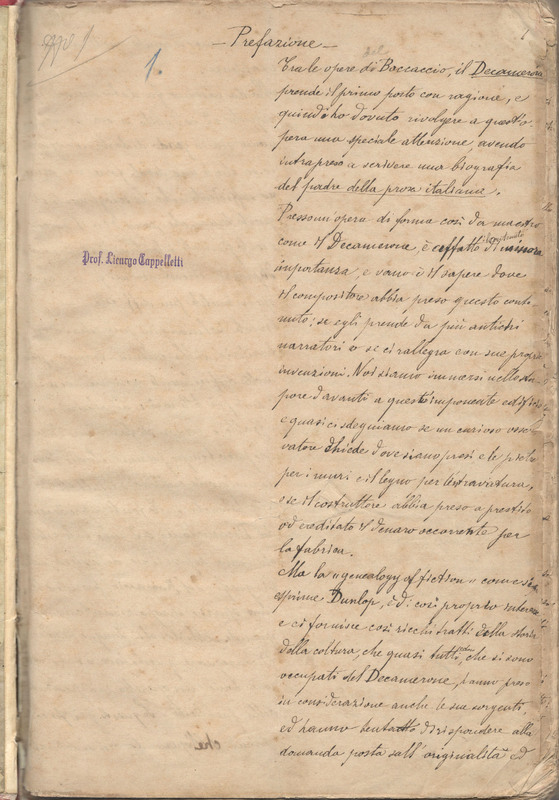 1
1.
- Prefazione -
Tra le opere di Boccaccio, il Decamerone
prende il primo posto con ragione, e
quindi ho dovuto rivolgere a questo
pera una speciale attenzione, avendo
intrapreso a scrivere una biografia
del padre della prosa italiana.
Presso un'opera di forma così da maestro
come il Decamerone, è il contenuto di minore
importanza, e vano è il sapere dove
il compositore abbia preso questo conte
nuto; se egli prende da più antichi
narratori o se ci rallegra con sue proprie
invenzioni. Noi siamo immersi nello stu
pore davanti a quest'imponente edifizio
e quasi ci sdegniamo se un curioso osser
vatore chiede dove siano prese le pietre
per i muri e il legno per l'travatura,
e se il costruttore abbia preso a prestito
od ereditato il denaro occorrente per
la fabbrica.
Ma la "genealogy of fiction" come si
esprime Dunlop, è di così proprio interesse
e ci fornisce così ricchi tratti della storia
della coltura, che quasi tutti, che si sono
occupati del Decamerone, hanno preso
in considerazione anche le sue sorgenti,
ed hanno tentato di rispondere alla
domanda posta sull'originalità ed
Prof. Licurgo Cappelletti
che